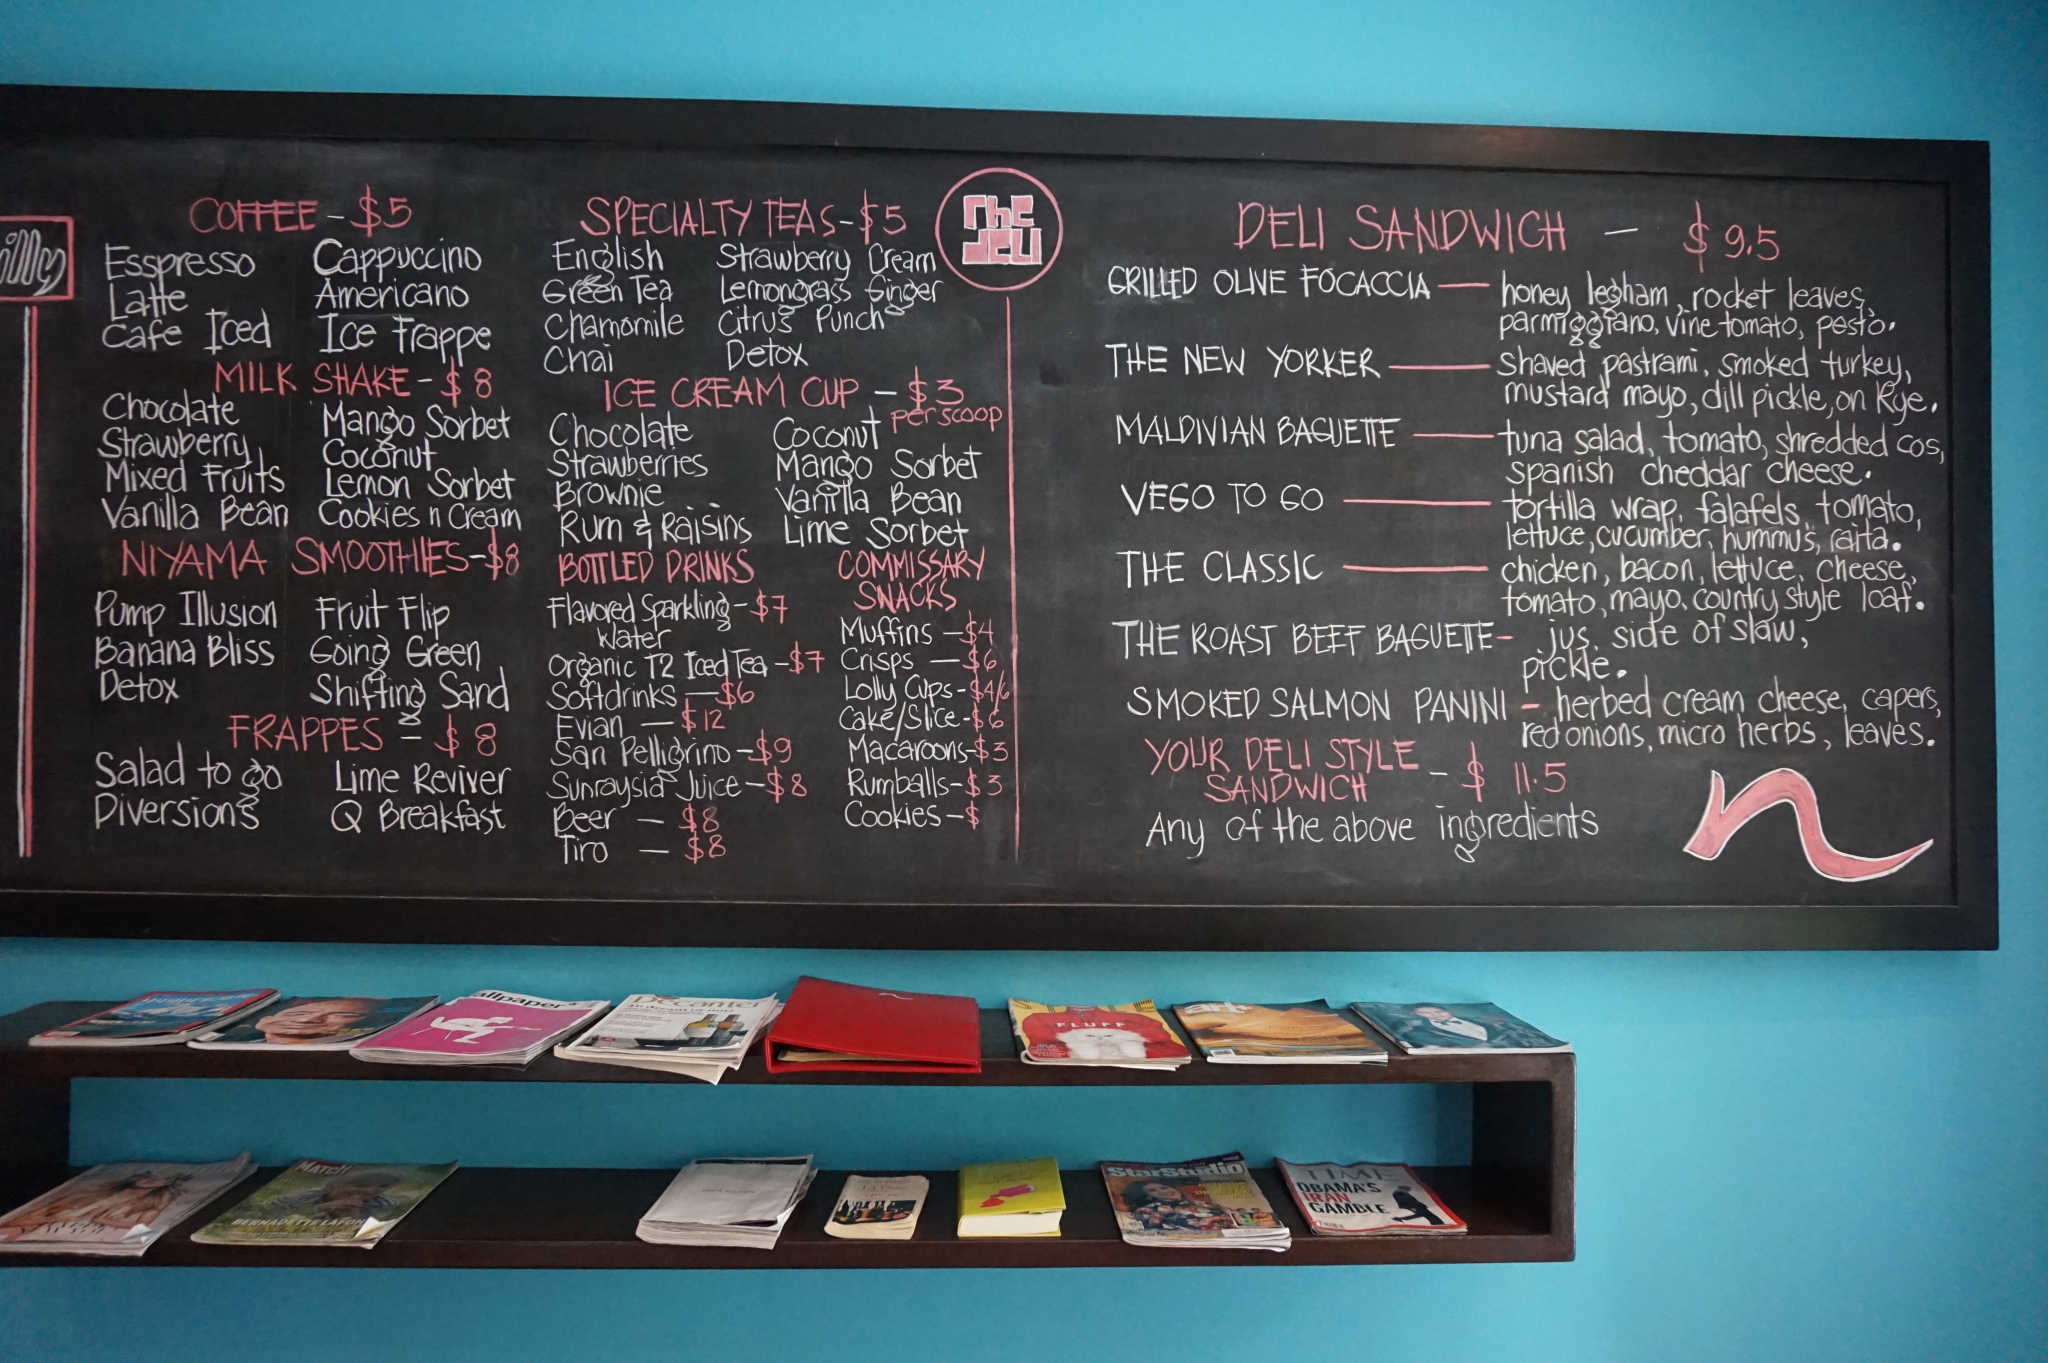 illy
COFFEE - $5
Esspresso Cappuccino
Latte Americano
Cafe Iced Ice Frappe
MILK SHAKE - $8
Chocolate Mango Sorbet
Strawberry Coconut
Mixed Fruits Lemon Sorbet
Vanilla Bean Cookies n Cream
NIYAMA SMOOTHIES - $8
Pump Illusion Fruit Flip
Banana Bliss Going Green
Detox Shifting Sand
FRAPPES - $8
Salad to go Lime Reviver
Diversions Q Breakfast
SPECIALTY TEAS - $5
English Strawberry Cream
Green Tea Lemongrass Ginger
Chamomile Citrus Punch
Chai Detox
ICE CREAM CUP - $3
per scoop
Chocolate Coconut
Strawberries Mango Sorbet
Brownie Vanilla Bean
Rum & Raisins Lime Sorbet
BOTTLED DRINKS
Flavored Sparkling - $7
Water
Organic T2 Iced Tea - $7
Softdrinks - $6
Evian - $12
San Pelligrino - $9
Sunraysia Juice - $8
Beer - $8
Tiro - $8
COMMISSARY
SNACKS
Muffins - $4
Crisps - $6
Lolly Cups - $4/6
Cake/Slice - $6
Macaroons - $3
Rumballs - $3
Cookies - $
The Deli
DELI SANDWICH - $9.5
GRILLED OLIVE FOCACCIA — honey legham, rocket leaves,
parmiggiano, vine tomato, pesto.
THE NEW YORKER — shaved pastrami, smoked turkey,
mustard mayo, dill pickle, on Rye.
MALDIVIAN BAGUETTE — tuna salad, tomato, shredded cos,
spanish cheddar cheese.
VEGO TO GO — tortilla wrap, falafels, tomato,
lettuce, cucumber, hummus, raita.
THE CLASSIC — chicken, bacon, lettuce, cheese,
tomato, mayo, country style loaf.
THE ROAST BEEF BAGUETTE - jus, side of slaw,
pickle.
SMOKED SALMON PANINI - herbed cream cheese, capers,
red onions, micro herbs, leaves.
YOUR DELI STYLE
SANDWICH - $ 11.5
Any of the above ingredients
n
allpaper
Decanter
FLUFF
art
MATCH
BERNADETTE LAFON
StarStudio
TIME
OBAMA'S
IRAN
GAMBLE